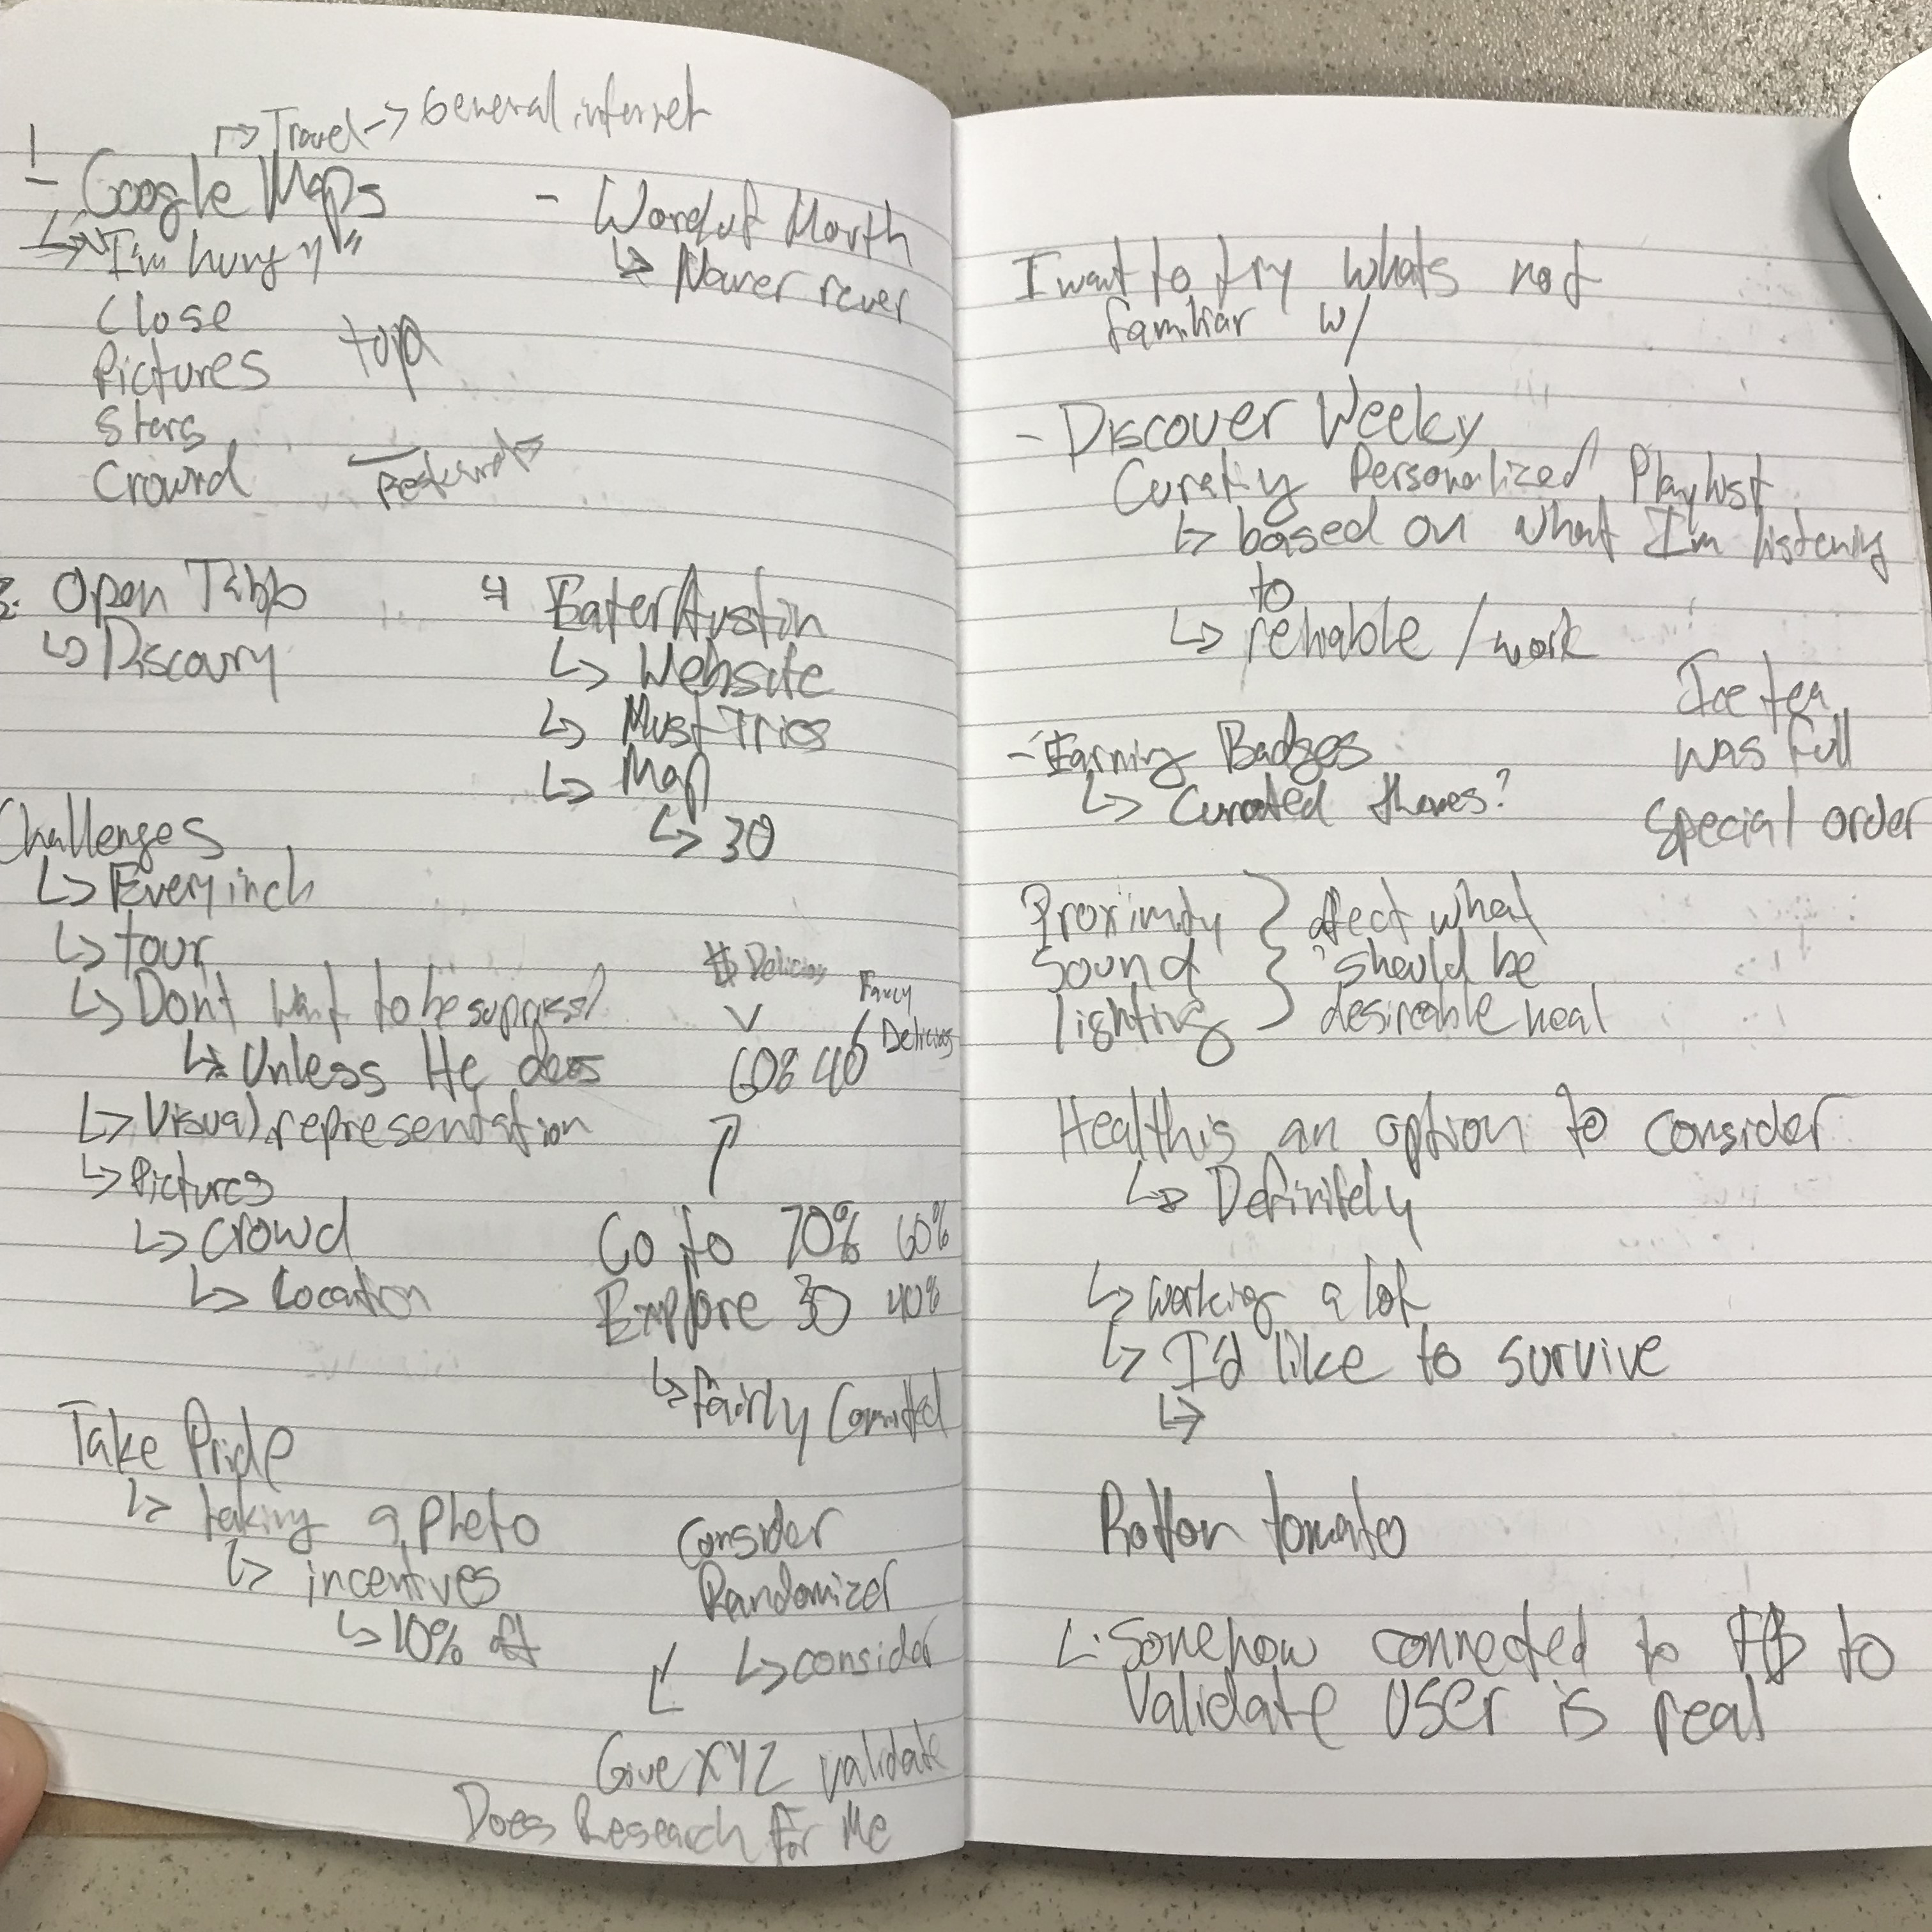 Travel -> General internet
1
- Google Maps
"I'm hungry"
Close
Pictures
Stars
Crowd
- Word of Mouth
Never
Open
4 Eater Austin
Website
Must Tries
Map
30
Challenges
Every inch
tour
Don't want to be
Unless He does
Visual representation
Pictures
Crowd
Location
$ Delicious
Fancy
Delicious
60% 40
Go to 70% 60%
Explore 30 40%
fairly Committed
Take Pride
taking a photo
incentives
10% off
Consider
Randomizer
consider
Give XYZ validate
Does Research For Me
I want to try whats not
familiar w/
- Discover Weeky
Personalized Playlist
based on what I'm listening
to
reliable / work
Ice tea
was full
Special order
- Earning Badges
Curated themes?
Proximity
Sound
lighting
affect what
should be
desireable meal
Health is an option to consider
Definitely
working a lot
I'd like to survive
Rotton tomato
Somehow connected to FB to
Validate user is real